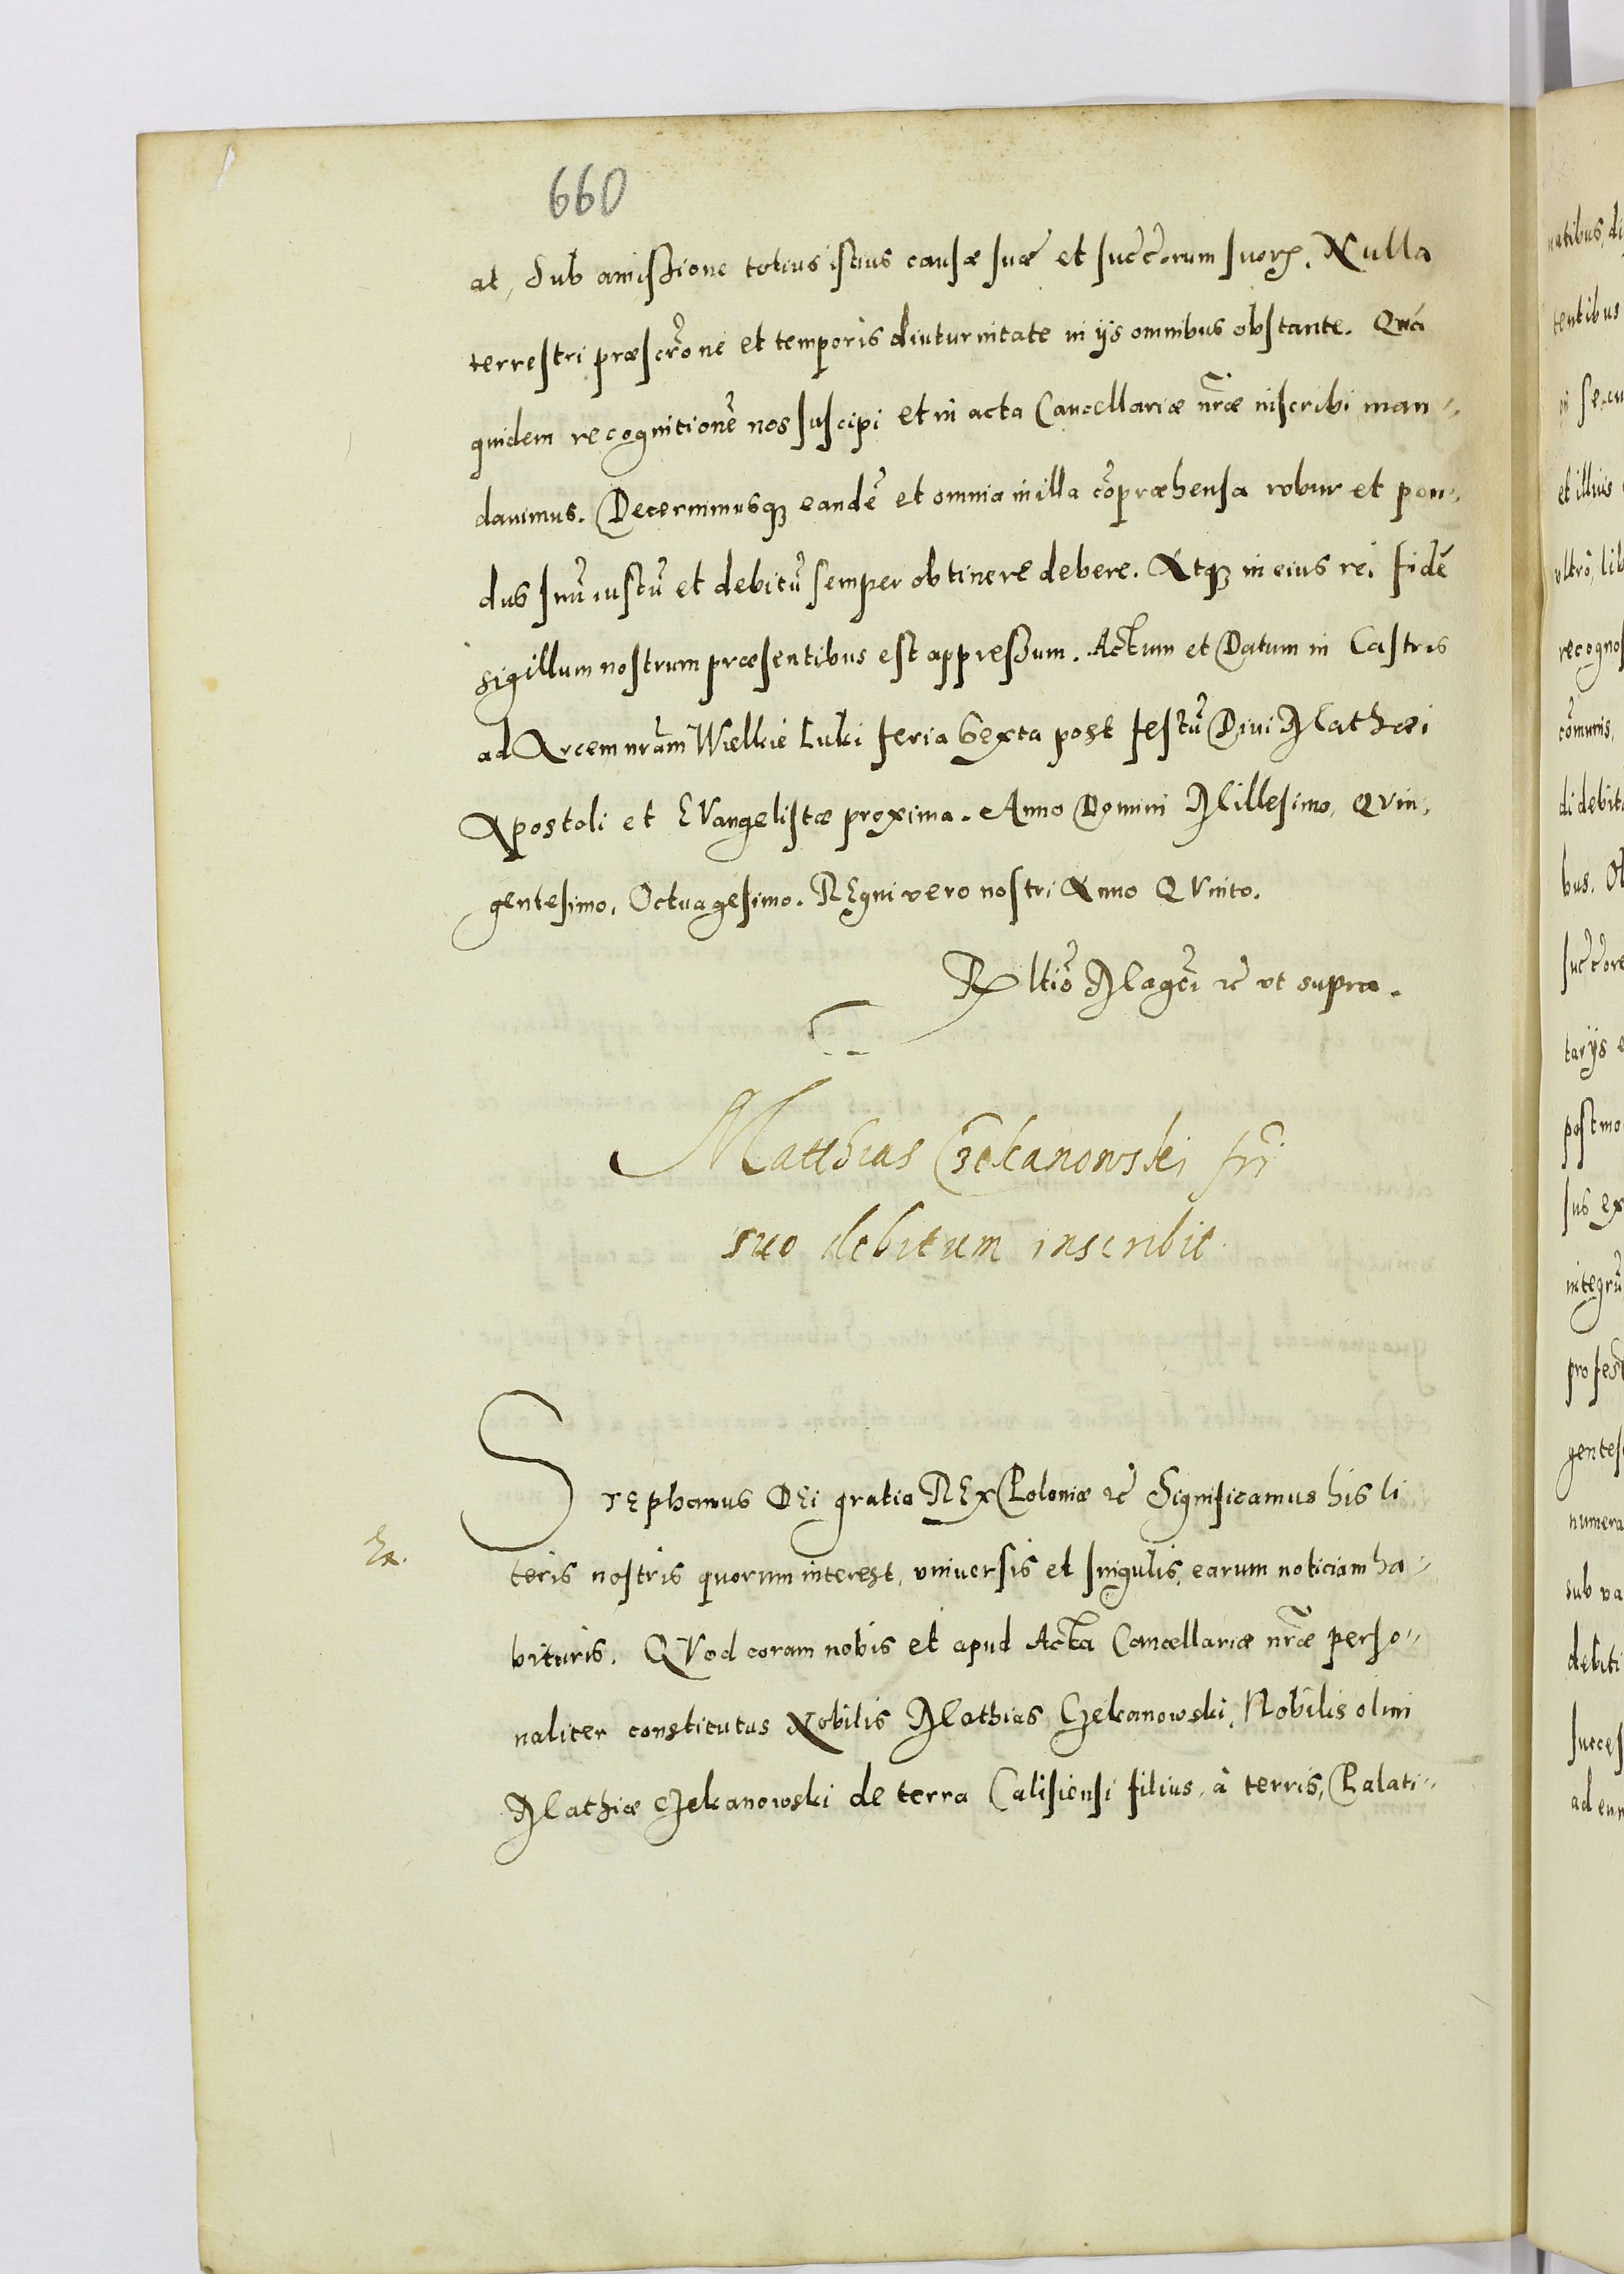 660
at, Sub amissione totius istius causæ suæ et succ̃orum suorꝝ. Nulla
terrestri præscr̃one et temporis diuturnitate in ijs omnibus obstante. Quã
quidem recognitionẽ nos suscipi et in acta Cancellariæ nr̃æ inscribi man-
dauimus. Decernimusqꝫ eandẽ et omnia in illa cõpræhensa robur et pon-
dus suũ iustũ et debitũ semper obtinere debere. Atqꝫ in eius rei fidẽ
sigillum nostrum præsentibus est appressum. Actum et Datum in Castris
ad Arcem nr̃am Wielkie Luki feria Sexta post festũ Diui Mathæi
Apostoli et EVangelistæ proxima. Anno Domini Millesimo, Qvin-
gentesimo, Octuagesimo. REgni vero nostri Anno QVinto.
Rltio Magci ꝛc̃ vt supra.
Matthias Czekanowski fri
suo debitum inscribit.
STEphanus DEi gratia REx Poloniæ ꝛc̃ Significamus his li
teris nostris quorum interest, vniuersis et singulis, earum noticiam ha-
bituris. QVod coram nobis et apud Acta Cancellariæ nr̃æ perso-
naliter constitutus Nobilis Mathias Czekanowski, Nobilis olim
Mathiæ Czekanowski de terra Calisiensi filius, à terris, Palati-